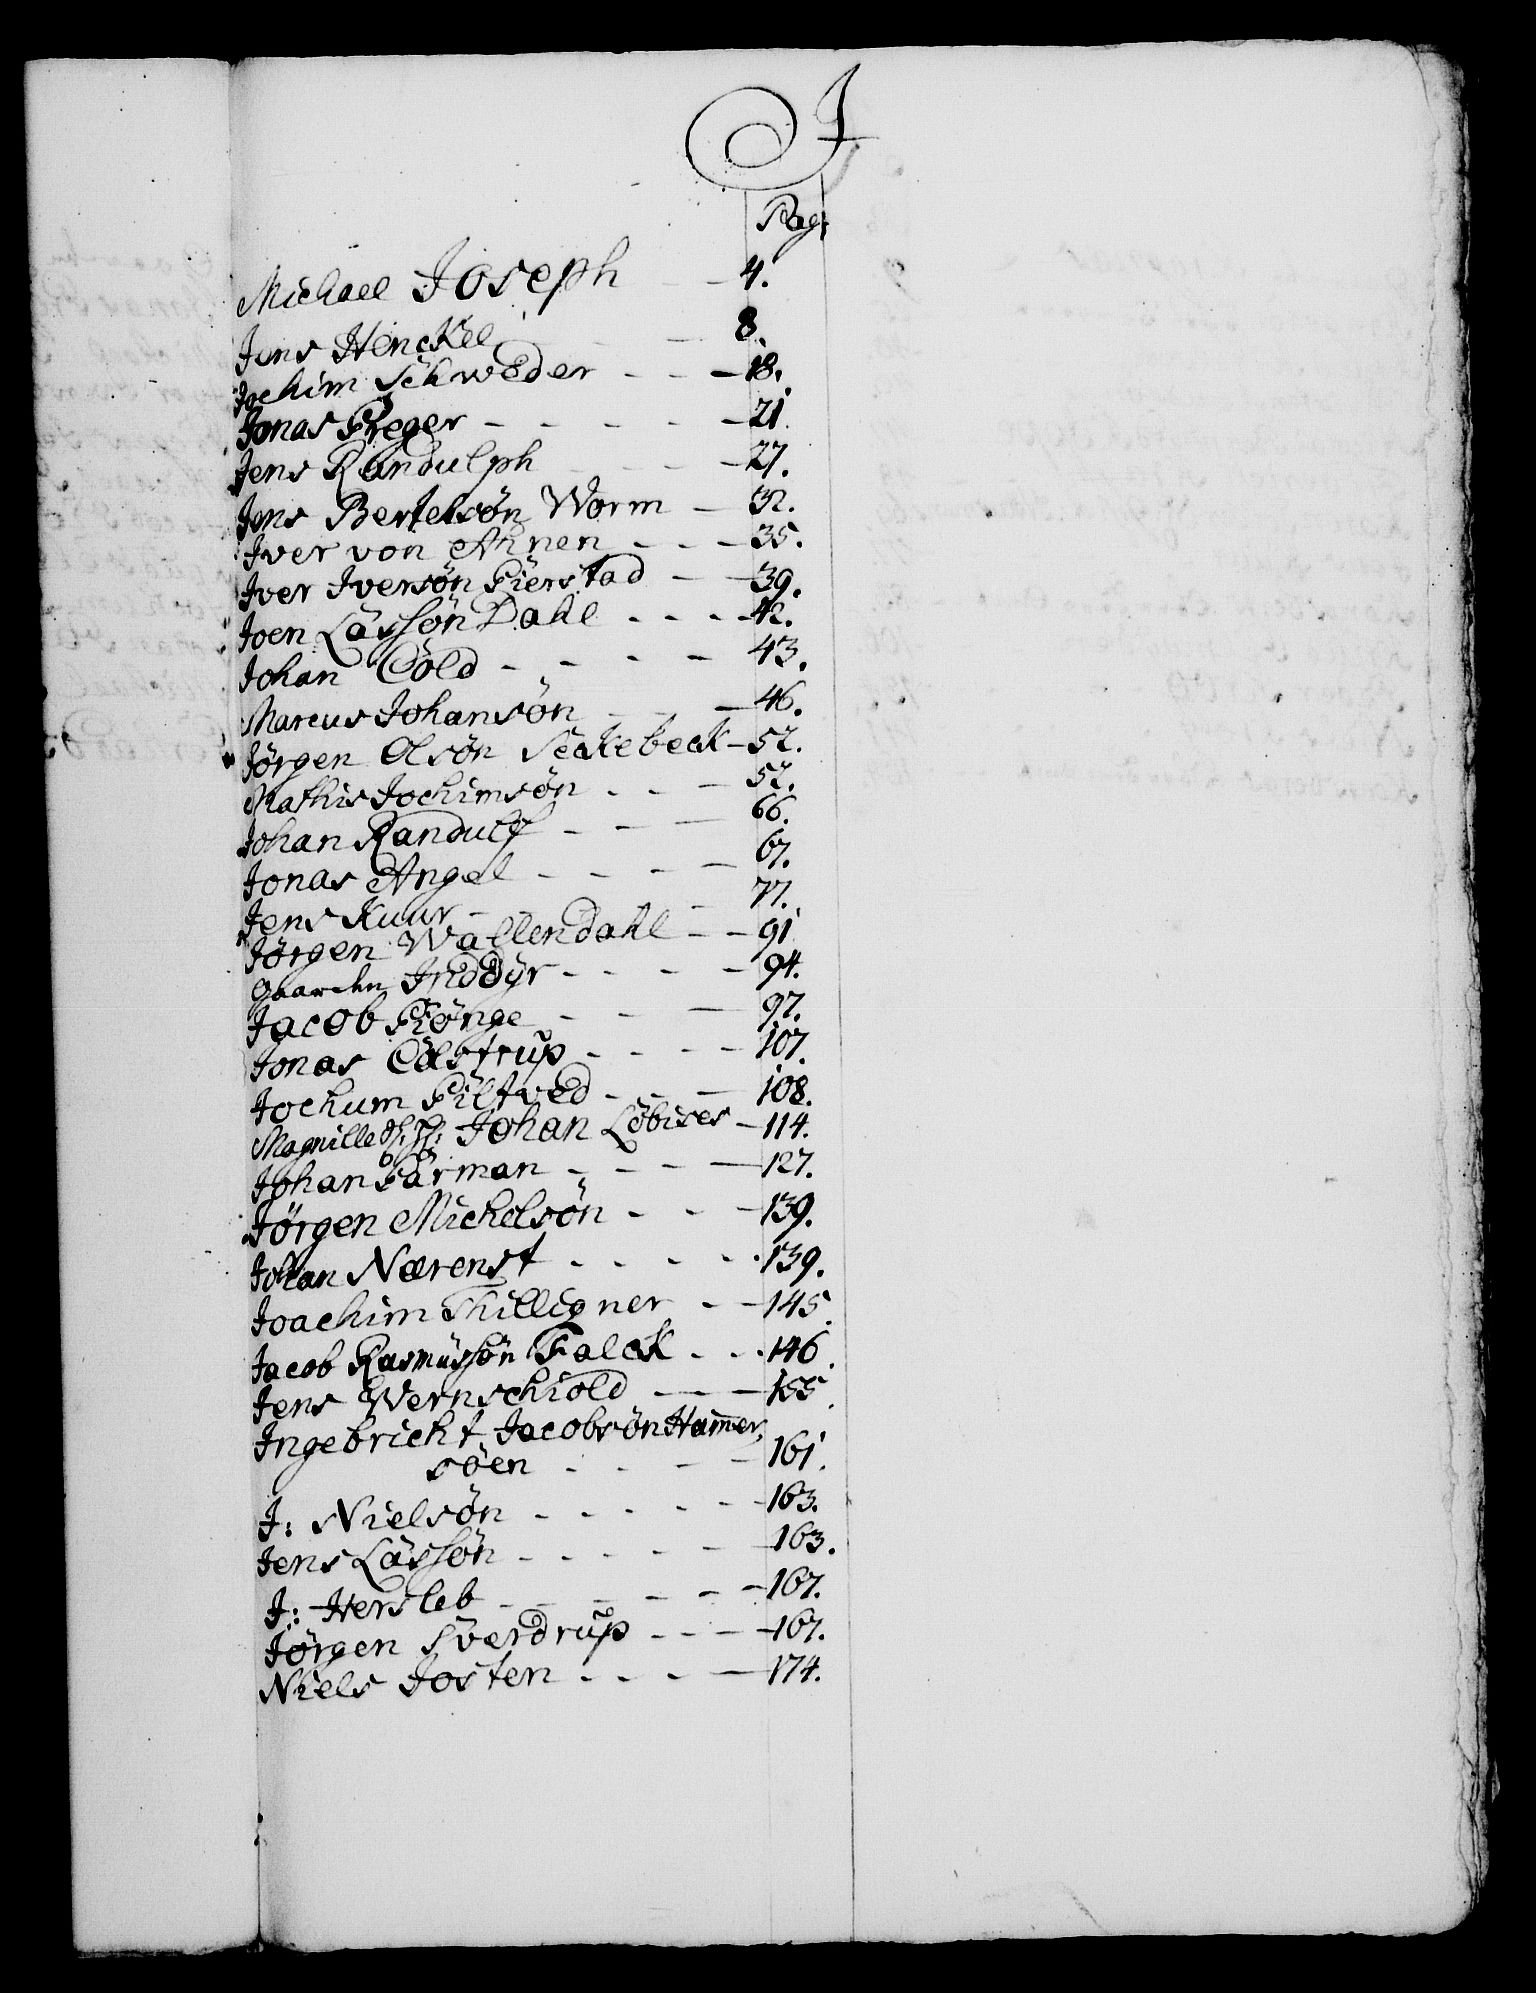 J
Pag:
Michael Joseph - - 4.
Jens Henckel - - - 8.
Jochim Schweder - - - 18.
Jonas Preger - - - - - 21.
Jens Randulph - - - - 27.
Jens Bertelsön Worm - 32.
Iver von Ahnen - - - 35.
Iver Iversön Fierstad - - 39.
Joen Lassön Dahl - - - - 42.
Johan Cold - - - - 43.
Marcus Johansön - - - 46.
Jörgen Olsön Seckebeck - 52.
Mathis Jochimsön - - - 52.
Johan Randulf - - - 66.
Jonas Angel - - - - 67.
Jens Kuur - - - - 77.
Jörgen Wallendahl - - 91
Gaarden Inddyr - - - - 94.
Jacob Piönge - - - 97.
Jonas Castrup - - - - 107.
Jochum Filtved - - - 108.
Johan Löbises - 114.
Johan Farman - - - - 127.
Jörgen Michelsön - - - 139.
Johan Nærenst - - - - - 139.
Joachim Thilligner - - 145.
Jacob Rasmussön Falck - - - 146.
Jens Wernschiold - - - 155.
Ingebricht Jacobsön Ham̄er,
söen - - - - 161.
J: Nielsön - - - - - 163.
Jens Lassön - - - - - 163.
J: Hersleb - - - - - - 167.
Jörgen Sverdrup - - - - 167.
Niels Josten - - - - 174.